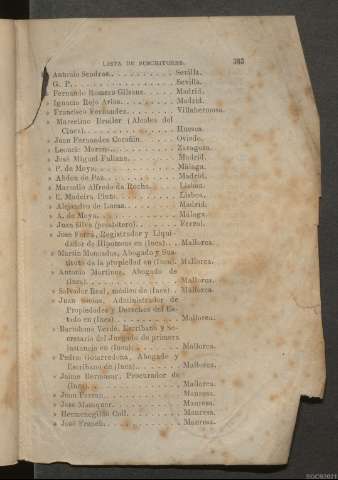 LISTA DE SUSCRITORES. 383
» Antonio Sendras. . . . . . . . . . . Sevilla.
G. P. . . . . . . . . . . . . . . . Sevilla.
» Fernando Romero Gilsanz. . . . . . Madrid.
» Ignacio Rojo Arias. . . . . . . . . Madrid.
» Francisco Fernandez. . . . . . . . Villahermosa.
» Marcelino
Cinca). . . . . . . . . . . . . . . Huesca.
» Juan Fernandez . . . . . . Oviedo.
» Leoncio . . . . . . . . . . Zaragoza.
» José Miguel . . . . . . . . Madrid.
» P. de Moya. . . . . . . . . . . . . Málaga.
» Abdon de Paz. . . . . . . . . . . . Madrid.
» Marcelio Alfredo da Rocha. . . . . Lisboa.
» E. Madeira Pinto. . . . . . . . . . Lisboa.
» Alejandro de . . . . . . . Madrid.
» A. de Moya. . . . . . . . . . . . . Málaga.
» Juan Silva (presbítero). . . . . . . Ferrol.
» José Ferrá, Registrador y Liqui-
dador de Hipotecas en (Inca). . . Mallorca.
» Martin Moncadas, Abogado y Sus-
tituto de la propiedad en (Inca). Mallorca.
» Antonio Martinez, Abogado de
(Inca). . . . . . . . . . . . . . . Mallorca.
» Salvador Real, médico de (Inca). . Mallorca.
» Juan Administrador de
Propiedades y Derechos del Es-
tado en (Inca). . . . . . . . . . . Mallorca.
» Bartolomé Verdé, Escribano y Se-
cretario del Juzgado de primera
instancia en (Inca). . . . . . . . . Mallorca.
» Pedro Gotarredona, Abogado y
Escribano de (Inca). . . . . . . . . Mallorca.
» Jaime Bennasar, Procurador de
(Inca). . . . . . . . . . . . . . . Mallorca.
» Juan . . . . . . . . . . . . Manresa.
» José . . . . . . . . . . . . Manresa.
» Hermenegildo Coll. . . . . . . . . Manresa.
» José Franch. . . . . . . . . . . . Manresa.